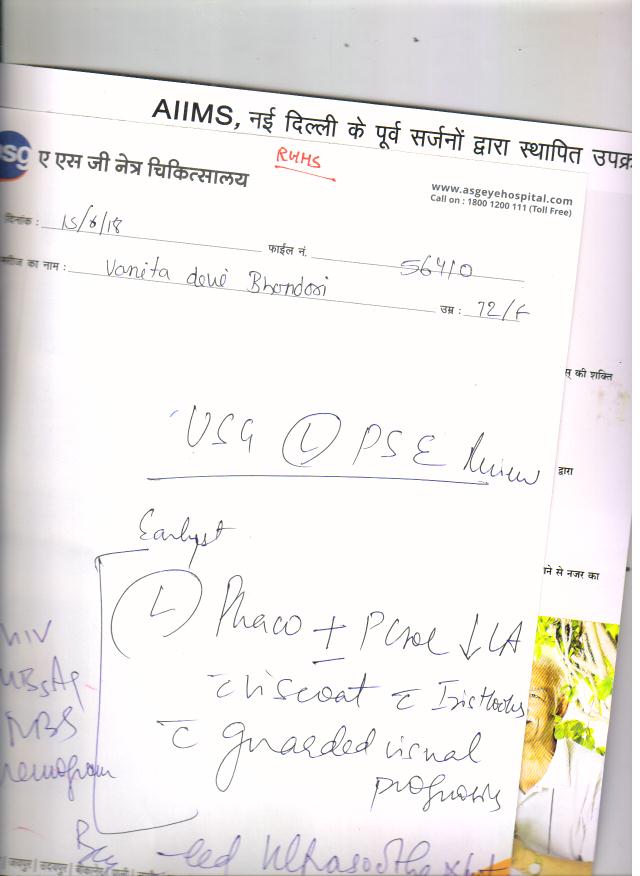 AIIMS, नई दिल्ली के पूर्व सर्जनों द्वारा स्थापित उपक्र
sg ए एस जी नेत्र चिकित्सालय
RUHS
www.asgeyehospital.com
Call on : 1800 1200 111 (Toll Free)
दिनांक : 15/6/18
फाईल नं. 56410
मरीज का नाम : Vanita devi Bhandari
उम्र : 72/F
स् की शक्ति
USG Ⓛ PSE Review
द्वारा
Earliest
ाने से नजर का
Ⓛ Phaco ± PCIOL ↓ LA
c̄ viscoat c̄ Iris Hooks
c̄ guarded visual
prognosis
HIV
HBsAg
RBS
Hemogram
जयपुर | उदयपुर | बीकानेर